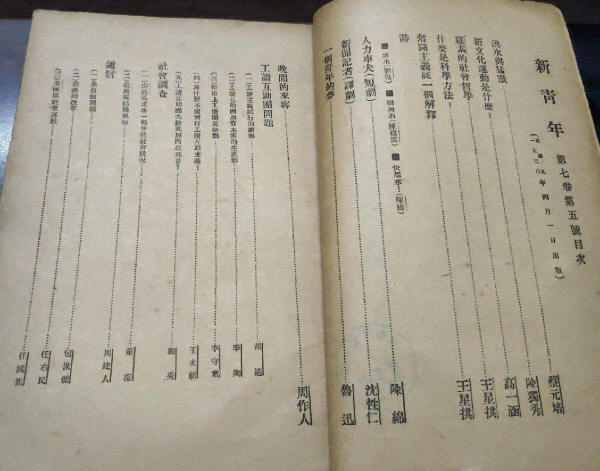 新青年 第七卷第五號目次
(一九二〇年四月一日出版)
洪水與猛獸 蔡元培
新文化運動是什麼? 陳獨秀
羅素的社會哲學 高一涵
什麼是科學方法? 王星拱
奮鬥主義底一個解釋 王星拱
詩
■ 快起來!(陳綿)
人力車夫(短劇) 陳綿
新聞記者(譯劇) 沈性仁
一個青年的夢 魯迅
晚間的來客 周作人
工讀互助團問題
(一)工讀主義試行的觀察 胡適
(二)工讀互助團 季陶
(三) 李守常
(四)爲什麼不能實行工讀互助主義? 王光祈
(五)工讀互助團失敗底原因在那裏? 獨秀
社會調查
(一)山西底正垂一部分的社會狀況
通信
周建人
包世傑
任右民